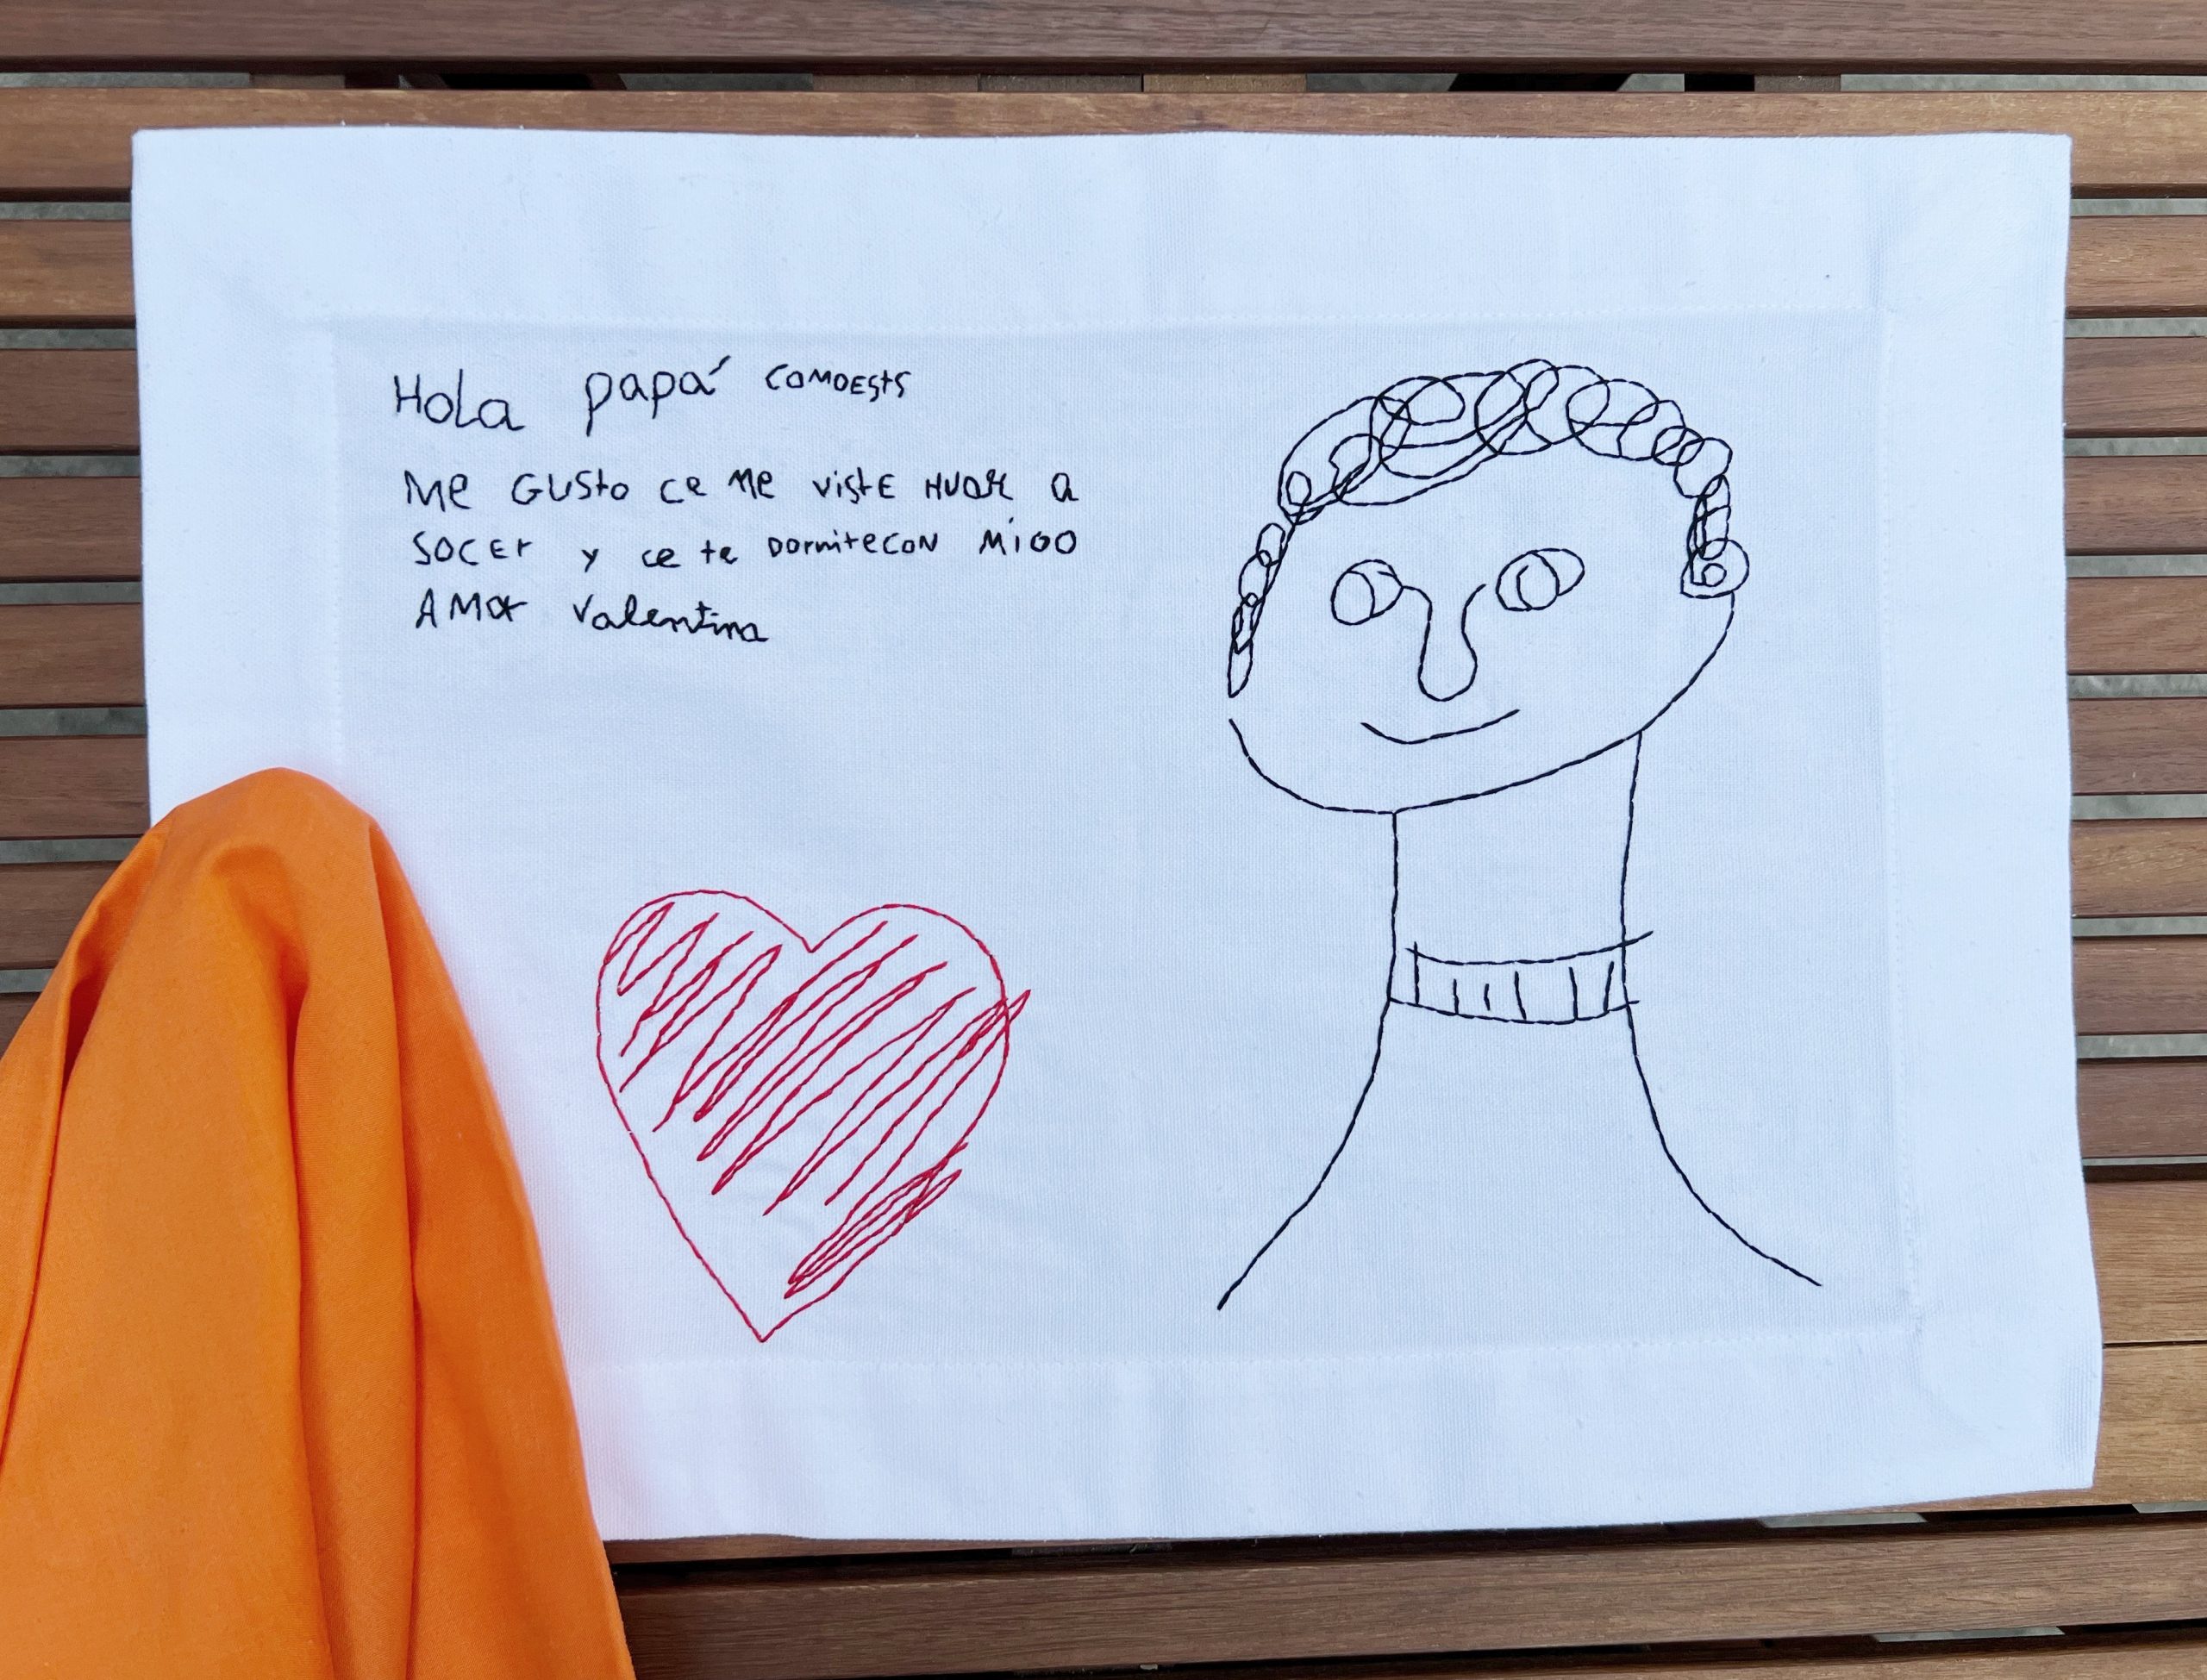 Hola papá COMOESTS
Me GUSto ce Me VIStE HUGAR a
SOCER y ce te DormiteCON MiGO
AMOR Valentina